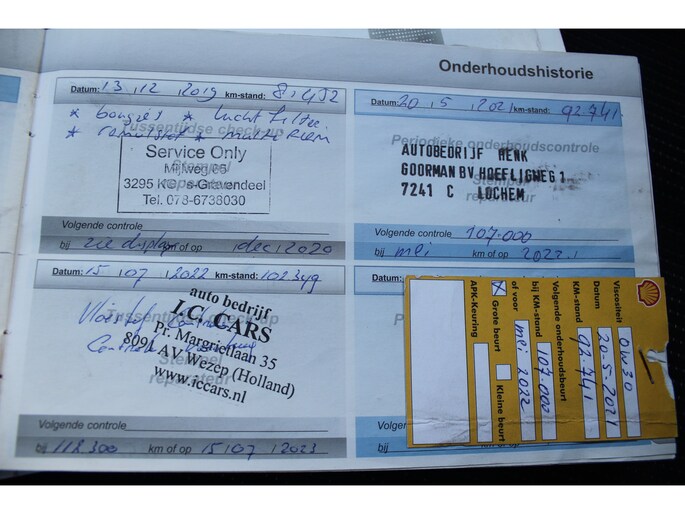 Onderhoudshistorie
Datum: 13 , 12 , 2019 km-stand:
* bougies * luchtfilter
* remvloeistof * multi Riem
Tussentijdse check-up
Service Only
Mijlweg 65
3295 KG, 's-Gravendeel
Tel. 078-6738030
Stempel
reparateur
Volgende controle
bij zie display km of op 1 dec , 2020
Datum: 20 , 5 , 2021 km-stand: 92.741
Periodieke onderhoudscontrole
AUTOBEDRIJF HENK
GOORMAN BV HOEFLIGWEG 1
7241 C LOCHEM
Stempel
reparateur
Volgende controle 107.000
bij mei km of op 2022
Datum: 15 , 07 , 2022 km-stand: 102349
Tussentijdse check-up
auto bedrijf
I.C. CARS
Pr. Margrietlaan 35
8091 AV Wezep (Holland)
www.iccars.nl
Stempel
reparateur
Volgende controle
bij 118300 km of op 15 , 07 , 2023
Volgende
bij
Viscositeit 0W30
Datum 20-5-2021
KM-stand 92.741
Volgende onderhoudsbeurt
bij KM-stand 107-000
of voor mei 2022
X Grote beurt Kleine beurt
APK-Keuring